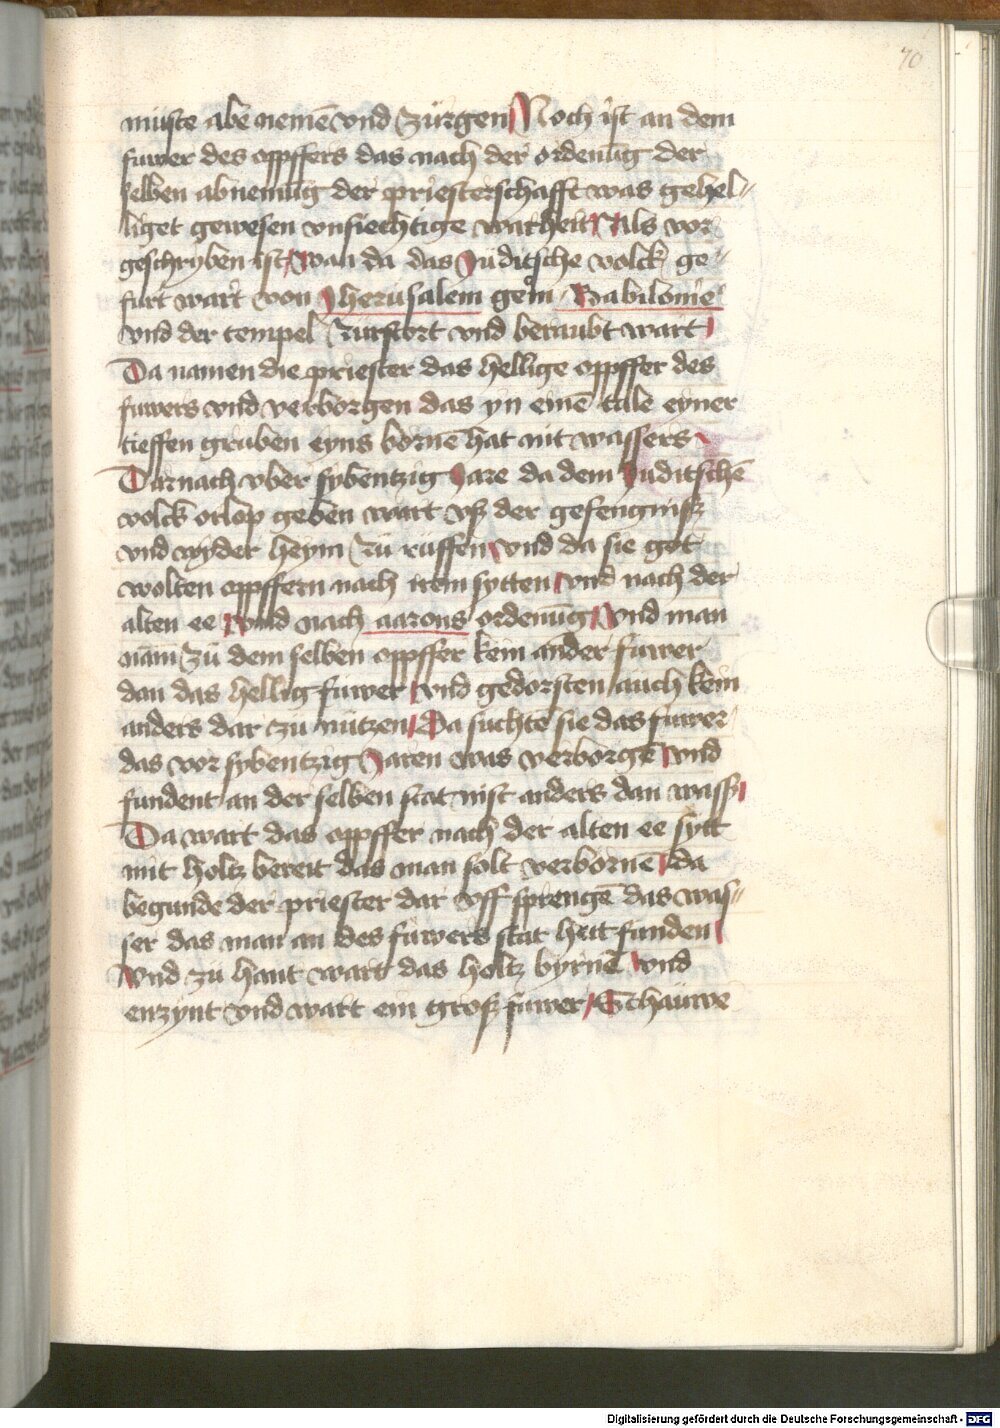 70
müste abe nemē vnd zürgen Noch ist an dem
fuwer des oppffers das nach der ordenūg der
selben abnemūg der priesterschafft was gehel-
liget gewesen vnsiechtige warheit Als vor
geschryben ist wan da das Juditsche volck ge-
furt wart von Jherusalem gein Babilonie
vnd der tempel zurstort vnd beraubt wart
Da namen die priester das hellige oppffer des
fuwers vnd verborgen das yn einē tale eyner
tieffen gruben eyns bornē hat nit wassers
Darnach vber sybentzig Jare da dem Juditschē
volck orlop geben wart vß der gefengniß
vnd wyder heym zu rüffen vnd da sie got
wolten oppffern nach irem sytten vnd nach der
alten ee vnd nach aarons ordenūg vnd man
nam zü dem selben oppffer kein ander fuwer
dan das hellig fuwer vnd gedorsten auch kein
anders dar zu nützen Da suchtē sie das fuwer
das vor sybentzig Jaren was verborgē vnd
fundent an der selben stat nist anders dan wass
Da wart das oppffer nach der alten ee sytt
mit holtz bereit das man solt verbornē da
begunde der priester dar vff sprengē das was-
ser das man an des fuwers stat hett funden
vnd zü hant wart das holtz byrnē vnd
enzynt vnd wart ein groß fuwer Schauwe
Digitalisierung gefördert durch die Deutsche Forschungsgemeinschaft - DFG